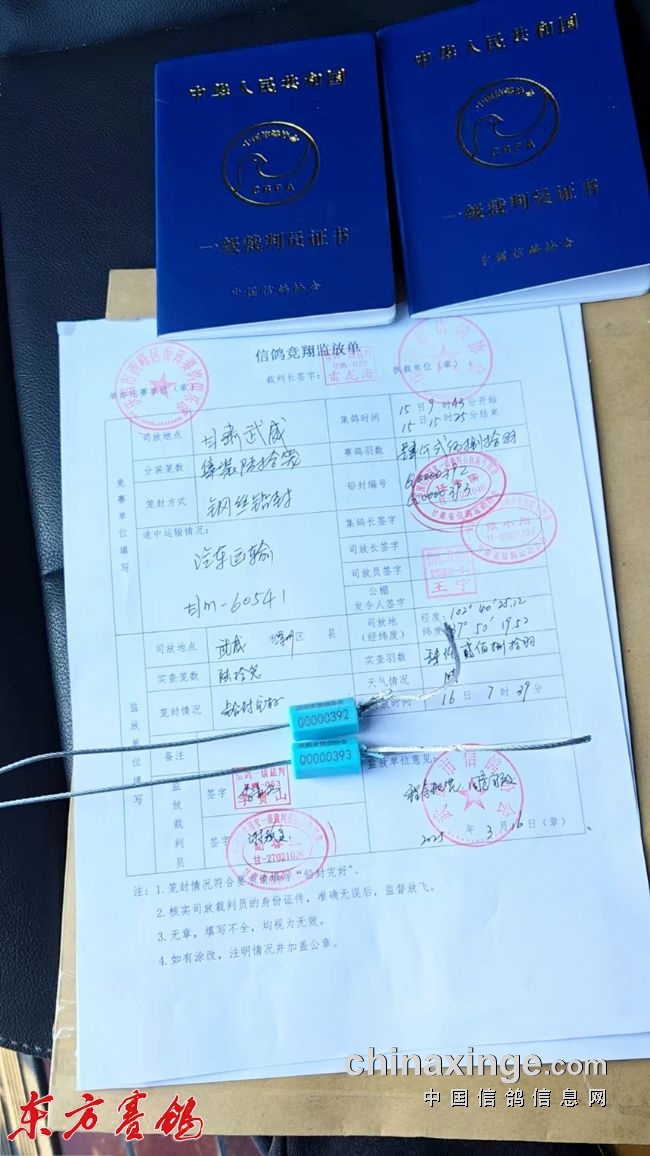 中华人民共和国
中国信鸽协会
CRPA
一级裁判员证书
中国信鸽协会
中华人民共和国
一级裁判员证书
中国信鸽协会
信鸽竞翔监放单
裁判长签字：
执裁单位（章）
举办比赛单位（章）
竞赛单位填写
司放地点
甘肃武威
集鸽时间
15日9时43分开始
15日15时25分结束
分装笼数
集装陆拾笼
赛鸽羽数
笼封方式
钢丝铅封
铅封编号
途中运输情况：
汽车运输
甘M-60541
集鸽长签字
司放长签字
司放员签字
王宁
公棚
发令人签字
监放单位填写
司放地点
武威 市 区 县
司放地
（经纬度）
经度：102° 40′ 25.12
纬度 37° 50′ 19.52
实查笼数
陆拾笼
实查羽数
笼封情况
铅封完好
天气情况
放时间
16日7时39分
Q0000392
Q0000393
备注
监放裁判员
签字
签字
监放单位意见：
2025年3月16日（章）
注：1.笼封情况符合要求请填写“铅封完好”。
2.核实司放裁判员的身份证件，准确无误后，监督放飞。
3.无章，填写不全，均视为无效。
4.如有涂改，注明情况并加盖公章。
chinaxinge.com
中国信鸽信息网
东方赛鸽